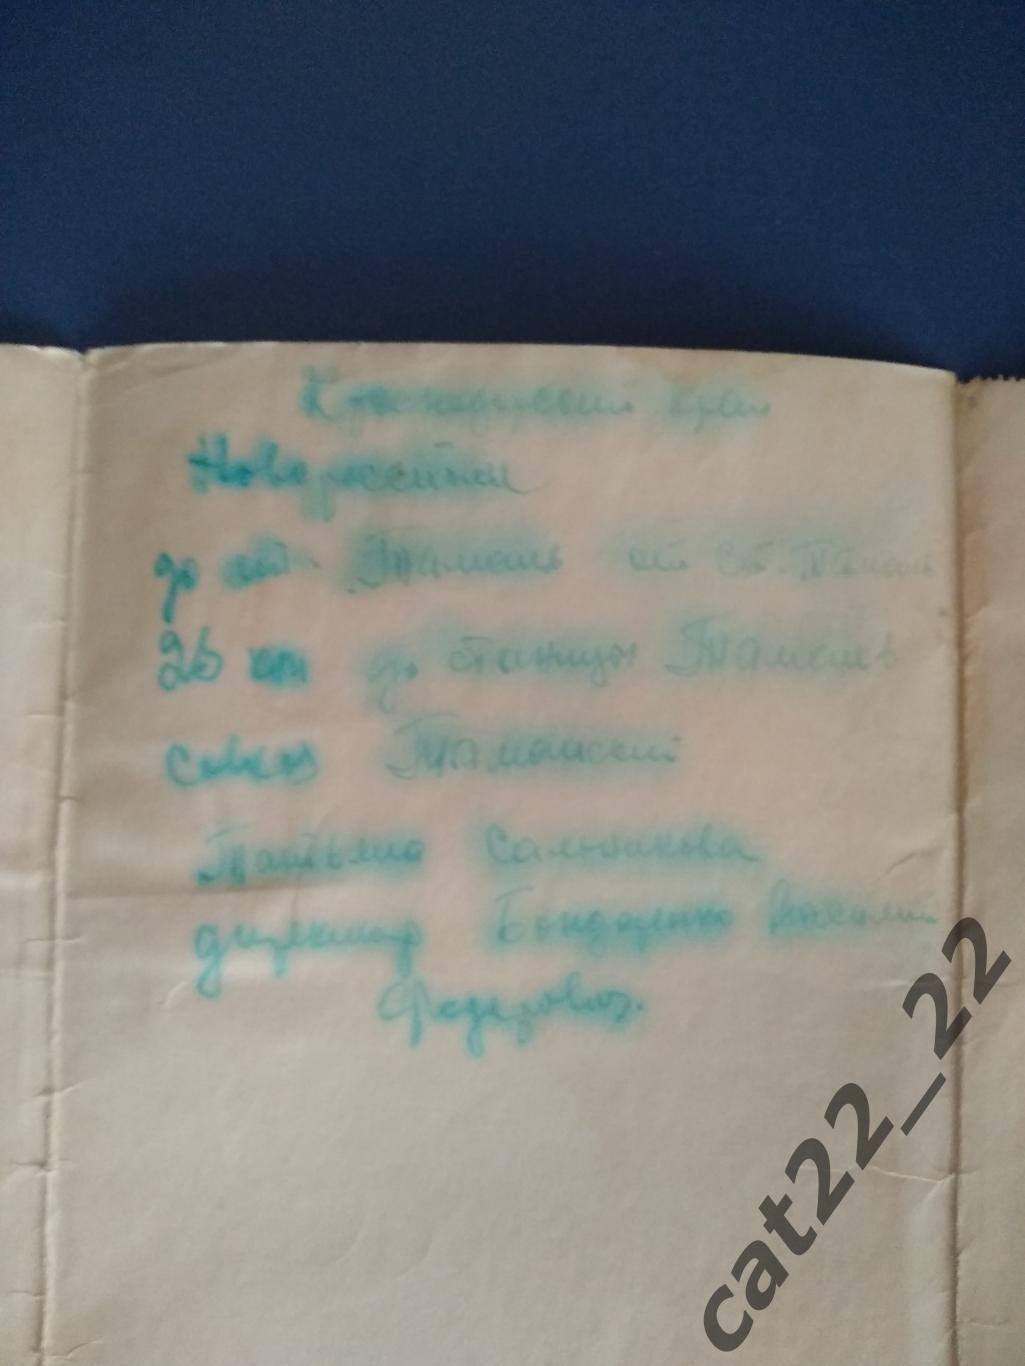 Краснодарский край
Новороссийск
до ст. Тамань от ст. Тамань
26 км до станцы Тамань
совхоз Таманский
Татьяна Сальникова
директор Бондаренко Василий
Федорович.
cat22_22